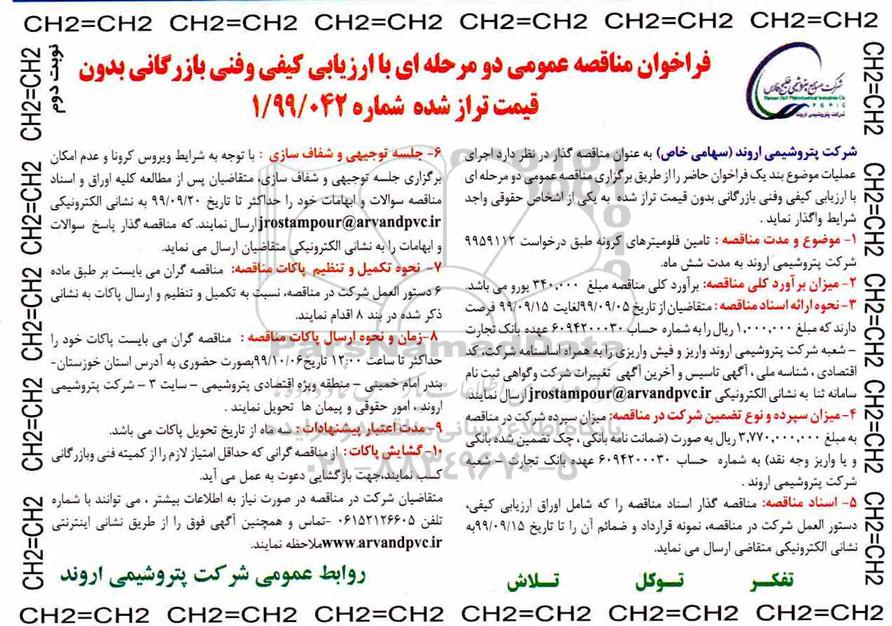 CH2=CH2 CH2=CH2 CH2=CH2 CH2=CH2 CH2=CH2 CH2=CH2
نوبت دوم
فراخوان مناقصه عمومی دو مرحله ای با ارزیابی کیفی وفنی بازرگانی بدون
قیمت تراز شده شماره ۱/۹۹/۰۴۲
شرکت صنایع پتروشیمی خلیج فارس
Persian Gulf Petrochemical Industries Co.
P G P I C
شرکت پتروشیمی اروند
شرکت پتروشیمی اروند (سهامی خاص) به عنوان مناقصه گذار در نظر دارد اجرای
عملیات موضوع بند یک فراخوان حاضر را از طریق برگزاری مناقصه عمومی دو مرحله ای
با ارزیابی کیفی وفنی بازرگانی بدون قیمت تراز شده به یکی از اشخاص حقوقی واجد
شرایط واگذار نماید .
۱- موضوع و مدت مناقصه : تامین فلومیترهای کرونه طبق درخواست ۹۹۵۹۱۱۲
شرکت پتروشیمی اروند به مدت شش ماه.
۲- میزان برآورد کلی مناقصه: برآورد کلی مناقصه مبلغ ۳۴۰,۰۰۰ یورو می باشد.
۳-نحوه ارائه اسناد مناقصه : متقاضیان از تاریخ ۹۹/۰۹/۰۵لغایت ۹۹/۰۹/۱۵ فرصت
دارند که مبلغ ۱,۰۰۰,۰۰۰ ریال را به شماره حساب ۶۰۹۴۲۰۰۰۳۰ عهده بانک تجارت
– شعبه شرکت پتروشیمی اروند واریز و فیش واریزی را به همراه اساسنامه شرکت، کد
اقتصادی ، شناسه ملی ، آگهی تاسیس و آخرین آگهی تغییرات شرکت و گواهی ثبت نام
سامانه ثنا به نشانی الکترونیکی jrostampour@arvandpvc.ir ارسال نمایند.
۴- میزان سپرده و نوع تضمین شرکت در مناقصه: میزان سپرده شرکت در مناقصه
به مبلغ ۳,۷۷۰,۰۰۰,۰۰۰ ریال به صورت (ضمانت نامه بانکی ، چک تضمین شده بانکی
و یا واریز وجه نقد) به شماره حساب ۶۰۹۴۲۰۰۰۳۰ عهده بانک تجارت – شعبه
شرکت پتروشیمی اروند .
۵- اسناد مناقصه: مناقصه گذار اسناد مناقصه را که شامل اوراق ارزیابی کیفی،
دستور العمل شرکت در مناقصه، نمونه قرارداد و ضمائم آن را تا تاریخ ۹۹/۰۹/۱۵به
نشانی الکترونیکی متقاضی ارسال می نماید.
۶- جلسه توجیهی و شفاف سازی : با توجه به شرایط ویروس کرونا و عدم امکان
برگزاری جلسه توجیهی و شفاف سازی، متقاضیان پس از مطالعه کلیه اوراق و اسناد
مناقصه سوالات و ابهامات خود را حداکثر تا تاریخ ۹۹/۰۹/۲۰ به نشانی الکترونیکی
jrostampour@arvandpvc.ir ارسال نمایند. که مناقصه گذار پاسخ سوالات
و ابهامات را به نشانی الکترونیکی متقاضیان ارسال می نماید.
۷- نحوه تکمیل و تنظیم پاکات مناقصه: مناقصه گران می بایست بر طبق ماده
۶ دستور العمل شرکت در مناقصه، نسبت به تکمیل و تنظیم و ارسال پاکات به نشانی
ذکر شده در بند ۸ اقدام نمایند.
۸-زمان و نحوه ارسال پاکات مناقصه : مناقصه گران می بایست پاکات خود را
حداکثر تا ساعت ۱۲:۰۰ تاریخ ۹۹/۱۰/۰۶بصورت حضوری به آدرس استان خوزستان-
بندر امام خمینی – منطقه ویژه اقتصادی پتروشیمی – سایت ۳ – شرکت پتروشیمی
اروند ، امور حقوقی و پیمان ها تحویل نمایند .
۹- مدت اعتبار پیشنهادات : سه ماه از تاریخ تحویل پاکات می باشد.
۱۰- گشایش پاکات : از مناقصه گرانی که حداقل امتیاز لازم را از کمیته فنی وبازرگانی
کسب نمایند،جهت بازگشایی دعوت به عمل می آید.
متقاضیان شرکت در مناقصه در صورت نیاز به اطلاعات بیشتر ، می توانند با شماره
تلفن ۰۶۱۵۲۱۲۶۶۰۵ -تماس و همچنین آگهی فوق را از طریق نشانی اینترنتی
www.arvandpvc.ir ملاحظه نمایند.
تفکر توکل تلاش
روابط عمومی شرکت پتروشیمی اروند
CH2=CH2 CH2=CH2 CH2=CH2 CH2=CH2 CH2=CH2 CH2=CH2
CH2=CH2 CH2=CH2 CH2=CH2 CH2=CH2 CH2=CH2
CH2=CH2 CH2=CH2 CH2=CH2 CH2=CH2 CH2=CH2
ParsNamadData
پایگاه اطلاع رسانی
۰۲۱-۸۸۳۴۹۶۷۰-۵